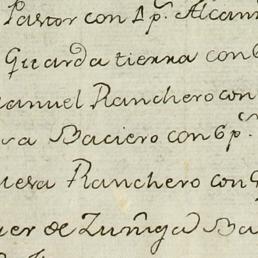 Pastor con 1 p.^s Alcan
Guarda tierra con 6
anuel Ranchero con
va Baciero con 6 p.^s
ueva Ranchero con
uer de Zuñiga Ba